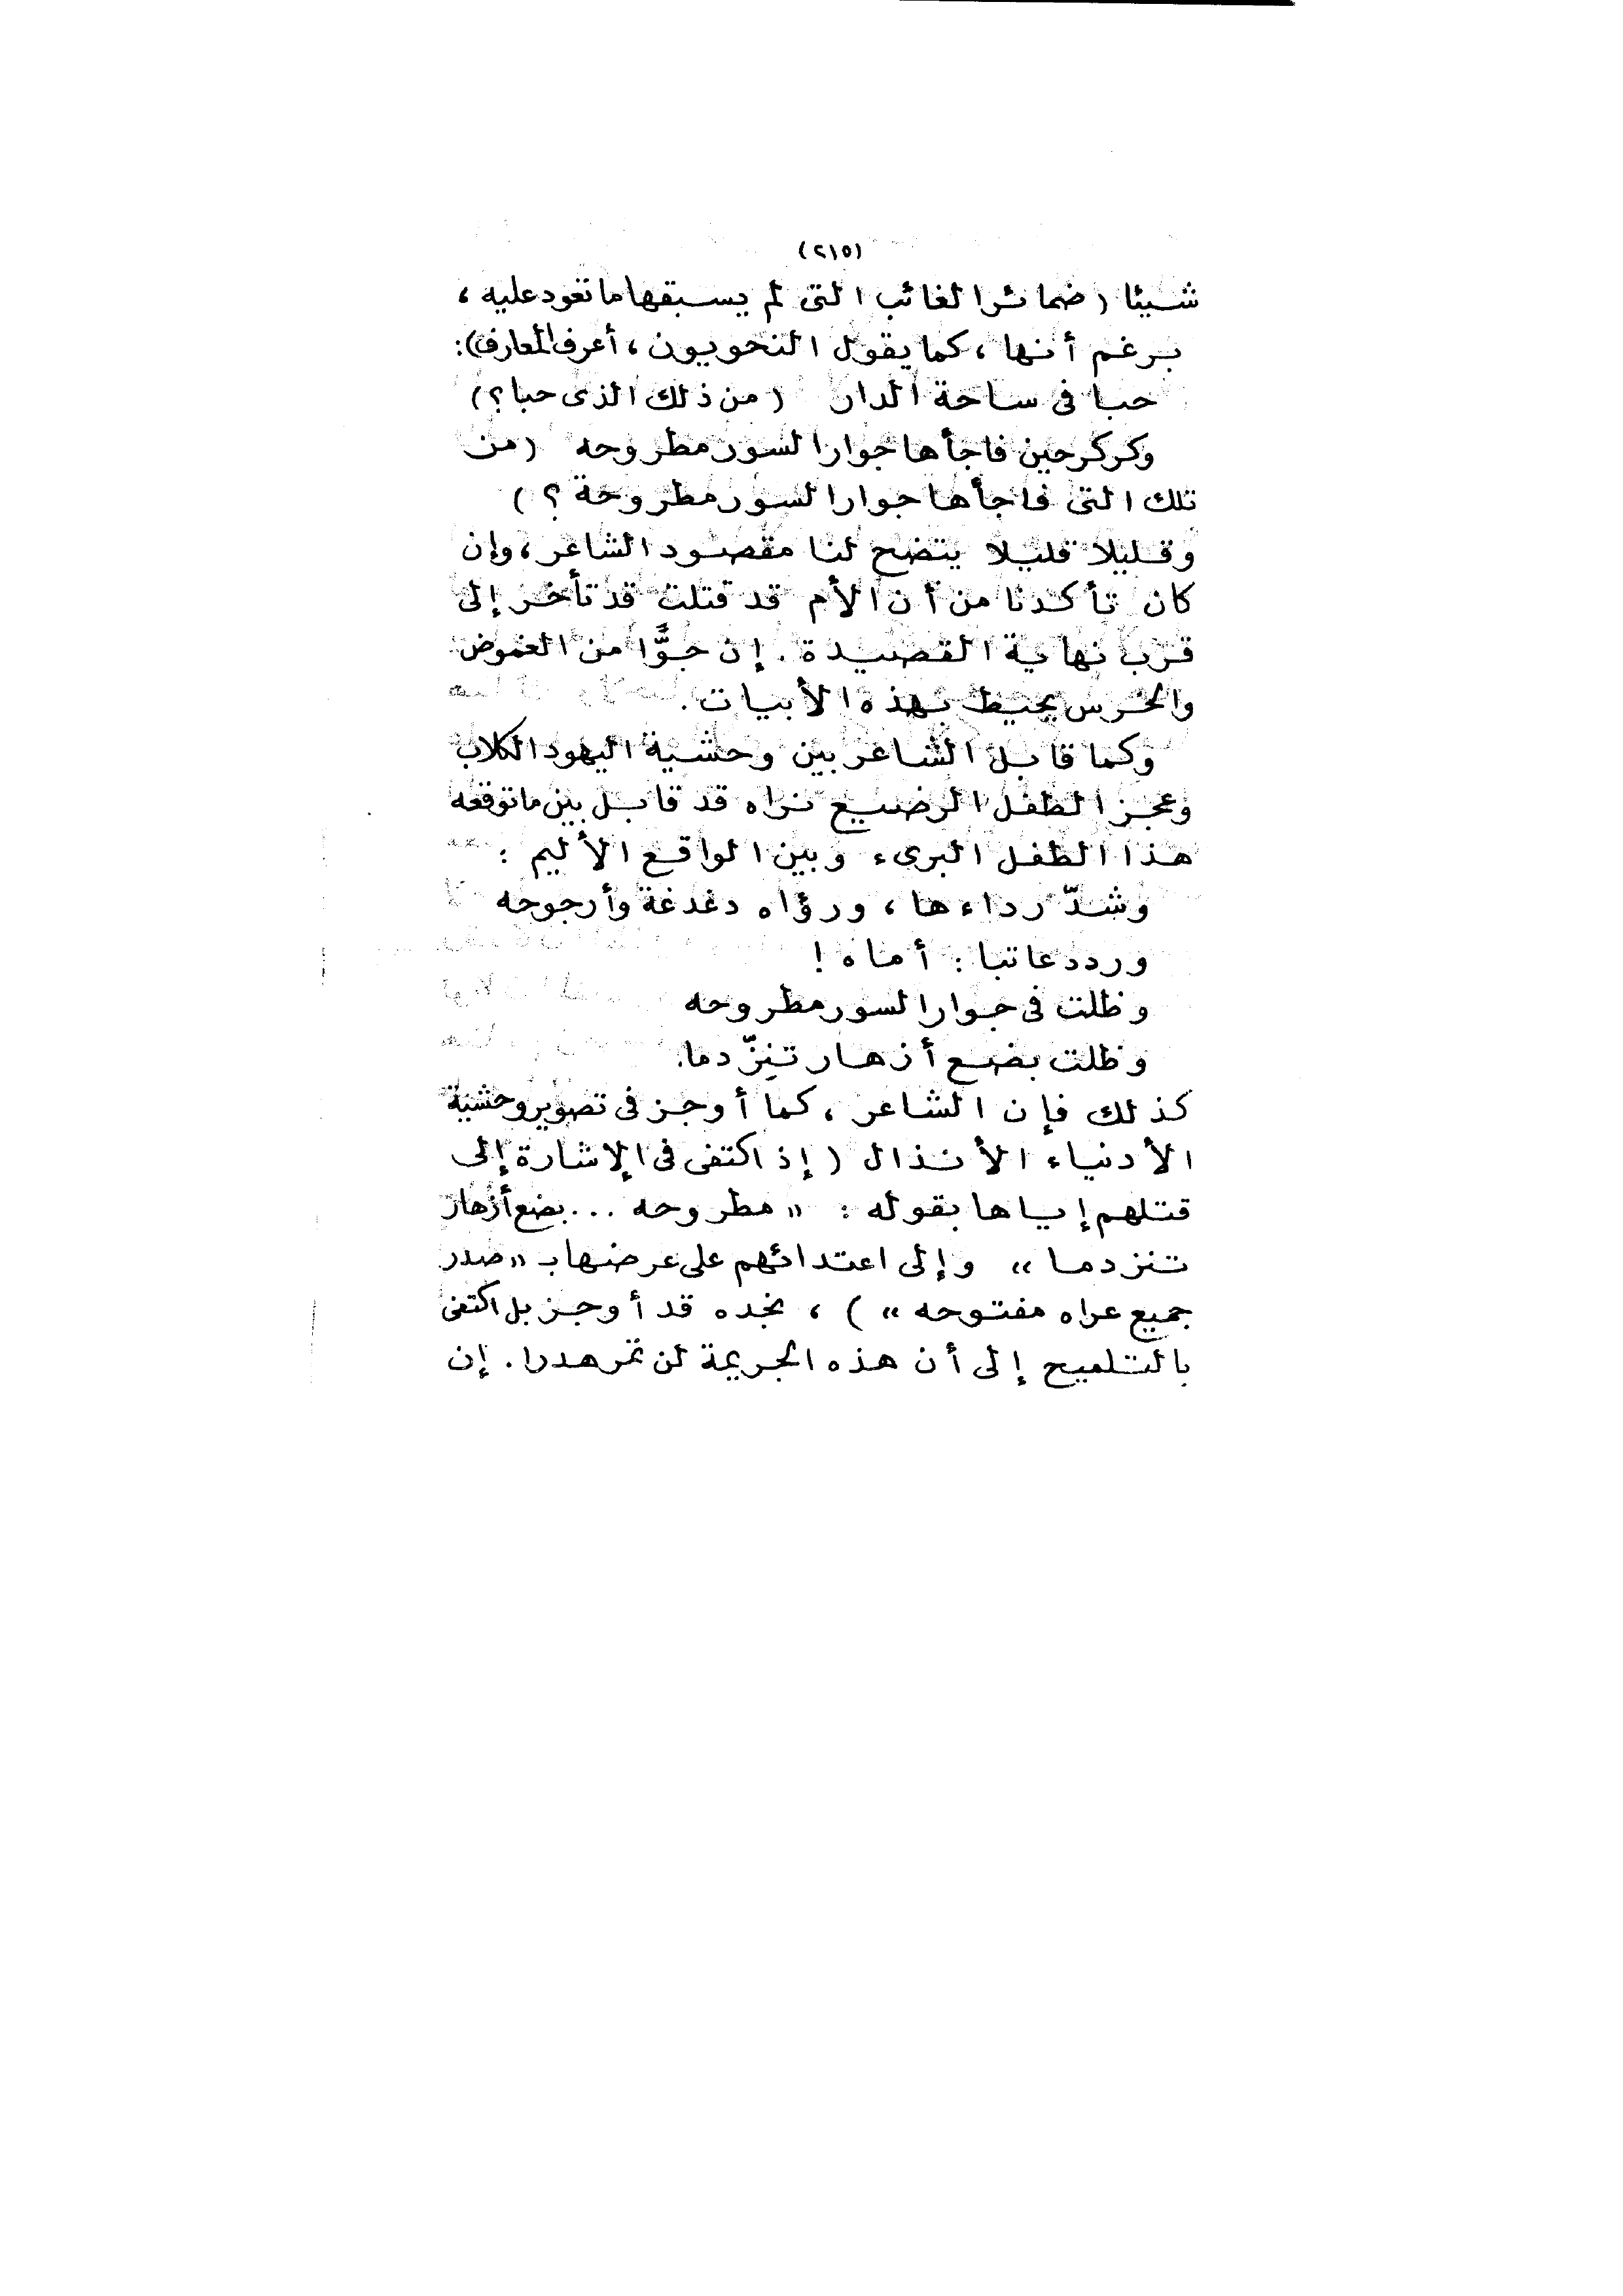 (٢١٥)
شيئا (ضمائر الغائب التى لم يسبقها ما تعود عليه،
برغم أنها، كما يقول النحويون، أعرف المعارف):
حبا فى ساحة الدار (من ذلك الذى حبا؟)
وكركر حين فاجأها جوار السور مطروحه (من
تلك التى فاجأها جوار السور مطروحة؟)
وقليلا قليلا يتضح لنا مقصود الشاعر، وإن
كان تأكدنا من أن الأم قد قتلت قد تأخر إلى
قرب نهاية القصيدة. إن جوًّا من الغموض
والخرس يحيط بهذه الأبيات.
وكما قابل الشاعر بين وحشية اليهود الكلاب
وعجز الطفل الرضيع نراه قد قابل بين ما توقعه
هذا الطفل البرىء وبين الواقع الأليم:
وشدّ رداءها، ورؤاه دغدغة وأرجوحه
وردد عاتبا: أماه!
وظلت فى جوار السور مطروحه
وظلت بضع أزهار تنِزّ دما.
كذلك فإن الشاعر، كما أوجز فى تصوير وحشية
الأدنياء الأنذال (إذ اكتفى فى الإشارة إلى
قتلهم إياها بقوله: «مطروحه ... بضع أزهار
تنز دما» وإلى اعتدائهم على عرضها بـ «صدر
جميع عراه مفتوحه»)، نجده قد أوجز بل اكتفى
بالتلميح إلى أن هذه الجريمة لن تمر هدرا. إن